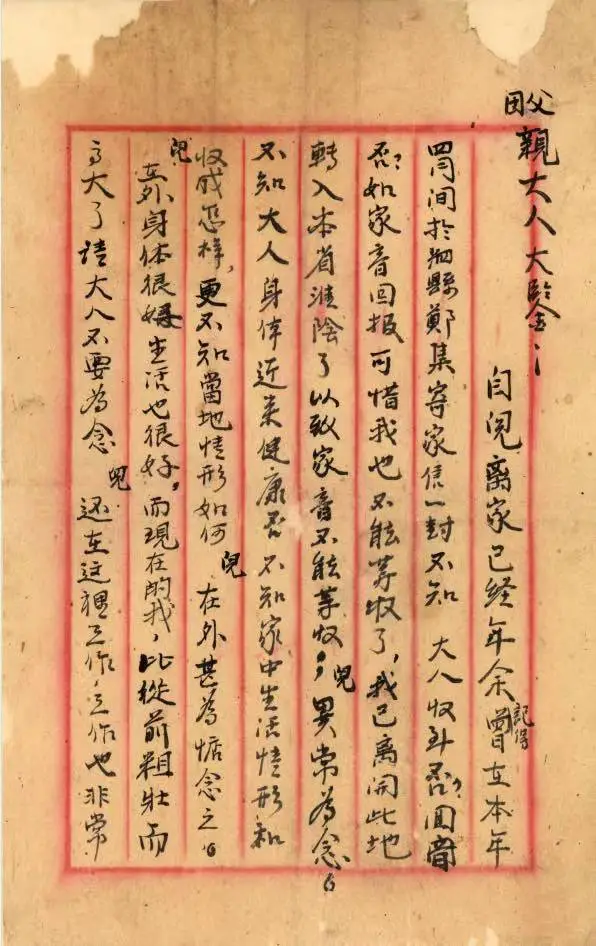 父親大人大鑒：
自児离家已经年余記得曾在本年
四月间於泗縣鄭集寄家信一封不知 大人收到否？回音
否？如家音回报可惜我也不能等收了，我已离開此地
轉入本省淮陰了以致家音不能等收，兒異常為念。
不知大人身体近来健康否不知家中生活情形和
收成怎样，更不知當地情形如何 兒在外甚為惦念之。
兒在外身体很好生活也很好。而現在的我，比從前粗壮而
高大了请大人不要為念 兒还在这裡工作，工作也非常